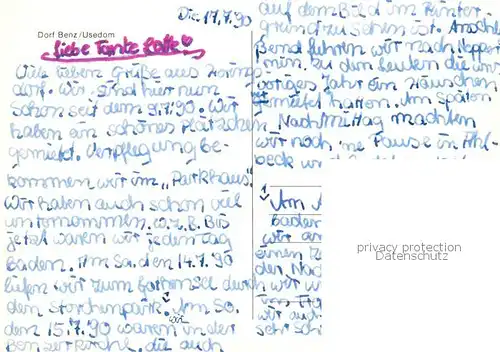 Di. 17.7.90
Dorf Benz/Usedom
Liebe Tante Lotte
Viele lieben Grüße aus
dorf. Wir sind hier nun
schon seit dem 9.7.90. Wir
haben ein schönes Plätzchen
gemietet. Verpflegung be-
kommen wir im „Parkhaus".
Wir haben auch schon viel
unternommen. w.z.B. Bis
jetzt waren wir jeden Tag
Baden. Am Sa. den 14.7.90
liefen wir zum durch
den Storchenpark. Am So.
dem 15.7.90 waren wir in der
Benzer Kirche, die auch
auf dem Bild im Hinter-
grund zu sehen ist. Anschlie
ßend fuhren wir nach
min. zu den Leuten die uns
voriges Jahr ein Häuschen
vermietet hatten. Am späten
Nachmittag machten
wir noch 'ne Pause in Ahl-
beck
Am
baden
wir
einen
der
wir
wir
sehr
privacy protection
Datenschutz